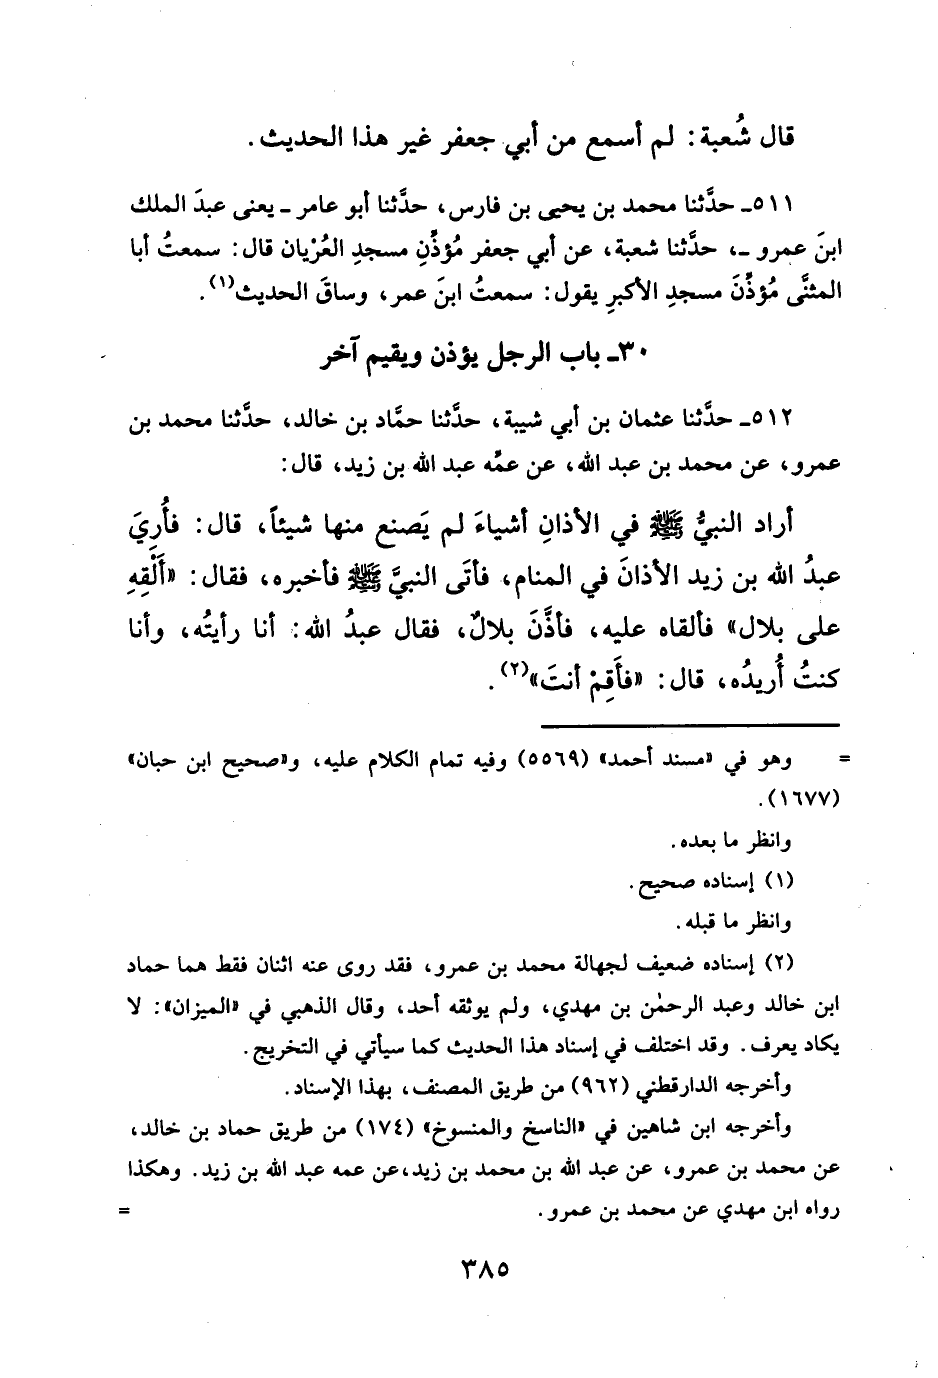 قال شُعبة: لم أسمع من أبي جعفر غير هذا الحديث.
٥١١ـ حدَّثنا محمد بن يحيى بن فارس، حدَّثنا أبو عامر ـ يعنى عبدَ الملك
ابنَ عمرو ـ، حدَّثنا شعبة، عن أبي جعفر مُؤذِّنِ مسجدِ العُرْيان قال: سمعتُ أبا
المثنَّى مُؤذِّنَ مسجدِ الأكبرِ يقول: سمعتُ ابنَ عمر، وساقَ الحديث(١).
٣٠ـ باب الرجل يؤذن ويقيم آخر
٥١٢ـ حدَّثنا عثمان بن أبي شيبة، حدَّثنا حمَّاد بن خالد، حدَّثنا محمد بن
عمرو، عن محمد بن عبد الله، عن عمِّه عبد الله بن زيد، قال:
أراد النبيُّ ﷺ في الأذانِ أشياءَ لم يَصنع منها شيئاً، قال: فأُرِيَ
عبدُ الله بن زيد الأذانَ في المنام، فأتَى النبيَّ ﷺ فأخبره، فقال: «أَلْقِهِ
على بلال» فألقاه عليه، فأذَّنَ بلالٌ، فقال عبدُ الله: أنا رأيتُه، وأنا
كنتُ أُريدُه، قال: «فأَقِمْ أنتَ»(٢).
= وهو في «مسند أحمد» (٥٥٦٩) وفيه تمام الكلام عليه، و«صحيح ابن حبان»
(١٦٧٧).
وانظر ما بعده.
(١) إسناده صحيح.
وانظر ما قبله.
(٢) إسناده ضعيف لجهالة محمد بن عمرو، فقد روى عنه اثنان فقط هما حماد
ابن خالد وعبد الرحمٰن بن مهدي، ولم يوثقه أحد، وقال الذهبي في «الميزان»: لا
يكاد يعرف. وقد اختلف في إسناد هذا الحديث كما سيأتي في التخريج.
وأخرجه الدارقطني (٩٦٢) من طريق المصنف، بهذا الإسناد.
وأخرجه ابن شاهين في «الناسخ والمنسوخ» (١٧٤) من طريق حماد بن خالد،
عن محمد بن عمرو، عن عبد الله بن محمد بن زيد،عن عمه عبد الله بن زيد. وهكذا
رواه ابن مهدي عن محمد بن عمرو. =
٣٨٥